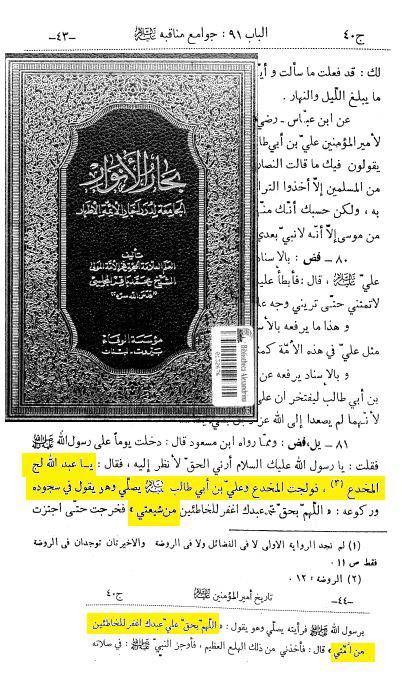 ج٤٠
الباب ٩١ : جوامع مناقبه
-٤٣-
لك : قد فعلت ما سألت و
ما يبلغ اللّيل والنهار .
عن ابن عبّاس ـ رضي
لأمير المؤمنين عليّ بن أبي طا
يقولون فيك ما قالت النصار
من المسلمين إلّا أخذوا الترا
به ، ولكن حسبك أنّك منّ
من موسى إلّا أنّه لا نبيّ بعدي
٨٠ - فض : بالإسناد
عليّ عليه السلام ، قال : فأبطأ علي
لا تمتني حتّى تريني وجه عل
و هذا ما يرفعه بالأس
مثل عليّ في هذه الأمّة كم
و بالإسناد يرفعه عن
بن أبي طالب ليفتخر ان عل
لأنّهما لم يصعدا إلى الله عزّ
بحار الأنوار
الجامعة لدرر أخبار الأئمة الأطهار
تأليف
العلم العلامة الحجة فخر الأمة المولى
الشيخ محمد باقر المجلسي
" قدس الله سره "
مؤسسة الوفاء
بيروت - لبنان
Bibliotheca Alexandrina
٨١ - يل، فض : وممّا رواه ابن مسعود قال : دخلت يوماً على رسول الله صلى الله عليه وآله
فقلت : يا رسول الله عليك السلام أرني الحقّ لأنظر إليه ، فقال : يا عبد الله لج
المخدع (٣) ، فولجت المخدع وعليّ بن أبي طالب عليه السلام يصلّي وهو يقول في سجوده
وركوعه : « اللّهمّ بحقّ محمّد عبدك اغفر للخاطئين من شيعتي » فخرجت حتّى اجتزت
(١) لم نجد الرواية الاولى لا فى الفضائل ولا فى الروضة والاخيرتان توجدان فى الروضة
فقط ص ١١ .
(٢) الروضة : ١٢ .
-٤٤-
تاريخ أمير المؤمنين
ج٤٠
برسول الله صلى الله عليه وآله فرأيته يصلّي وهو يقول : « اللّهمّ بحقّ عليّ عبدك اغفر للخاطئين
من اُمّتي » قال : فأخذني من ذلك الهلع العظيم ، فأوجز النبيّ صلى الله عليه وآله في صلاته